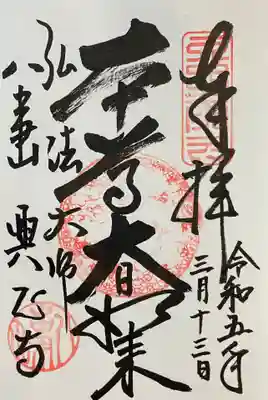 奉拝
令和五年
三月十三日
本尊大日如来
弘法大師
八事山 興正寺